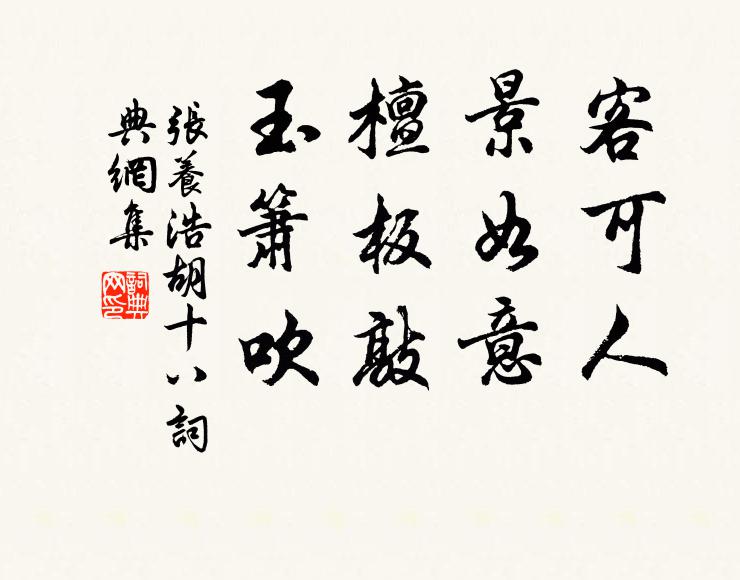 客可人
景如意
檀板敲
玉簫吹
張養浩胡十八詞
典網集
詞典
网印